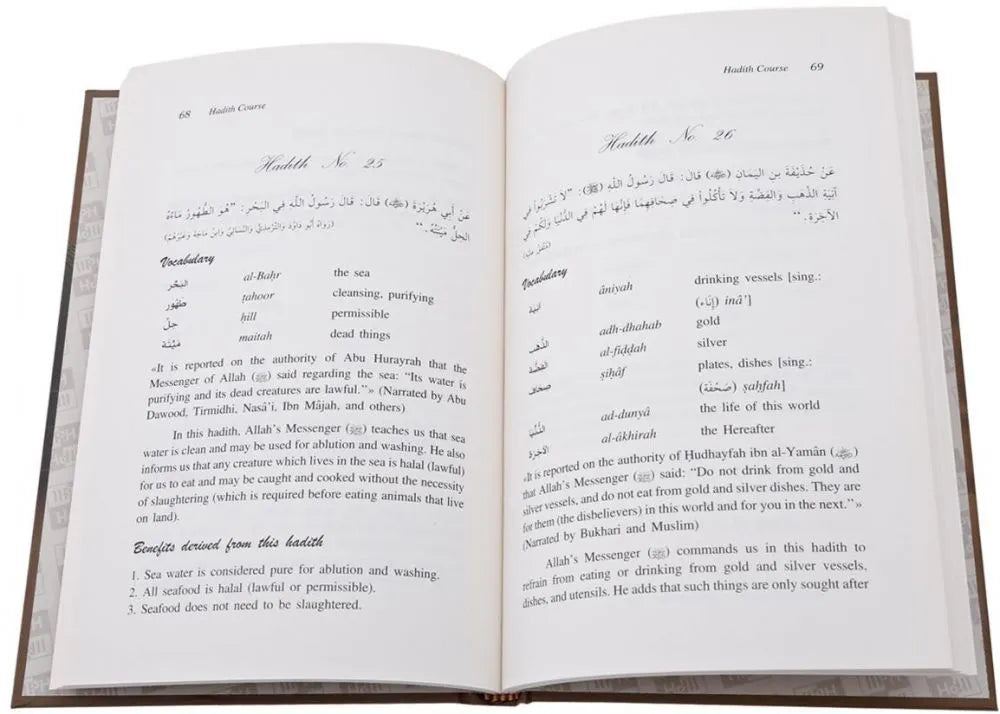 68 Hadith Course
Hadith No. 25
عَنْ أَبِي هُرَيْرَةَ (ﷺ) قَالَ: قَالَ رَسُولُ اللَّهِ فِي البَحْرِ: "هُوَ الطَّهُورُ مَاؤُهُ
الحِلُّ مَيْتَتُهُ."
(رَوَاهُ أَبُو دَاوُدَ وَالتِّرْمِذِيُّ وَالنَّسَائِيُّ وَابْنُ مَاجَهْ وَغَيْرُهُمْ)
Vocabulary
البَحْر al-Baḥr the sea
طَهُور ṭahoor cleansing, purifying
حِلّ ḥill permissible
مَيْتَة maitah dead things
«It is reported on the authority of Abu Hurayrah that the
Messenger of Allah (ﷺ) said regarding the sea: “Its water is
purifying and its dead creatures are lawful.”» (Narrated by Abu
Dawood, Tirmidhi, Nasâ’i, Ibn Mâjah, and others)
In this hadith, Allah’s Messenger (ﷺ) teaches us that sea
water is clean and may be used for ablution and washing. He also
informs us that any creature which lives in the sea is halal (lawful)
for us to eat and may be caught and cooked without the necessity
of slaughtering (which is required before eating animals that live
on land).
Benefits derived from this hadith
1. Sea water is considered pure for ablution and washing.
2. All seafood is halal (lawful or permissible).
3. Seafood does not need to be slaughtered.
Hadith Course 69
Hadith No. 26
عَنْ حُذَيْفَةَ بنِ اليَمَانِ قَالَ: قَالَ رَسُولُ اللَّهِ (ﷺ): "لاَ تَشْرَبُوا فِي
آنِيَةِ الذَّهَبِ وَالفِضَّةِ وَلاَ تَأْكُلُوا فِي صِحَافِهِمَا فَإِنَّهَا لَهُمْ فِي الدُّنْيَا وَلَكُمْ فِي
الآخِرَةِ."
(مُتَّفَقٌ عَلَيْهِ)
Vocabulary
آنِيَة âniyah drinking vessels [sing.:
(إِنَاء) inâ’]
الذَّهَب adh-dhahab gold
الفِضَّة al-fiḍḍah silver
صِحَاف ṣiḥâf plates, dishes [sing.:
(صَحْفَة) ṣaḥfah]
الدُّنْيَا ad-dunyâ the life of this world
الآخِرَة al-âkhirah the Hereafter
«It is reported on the authority of Ḥudhayfah ibn al-Yamân
that Allah’s Messenger (ﷺ) said: “Do not drink from gold and
silver vessels, and do not eat from gold and silver dishes. They are
for them (the disbelievers) in this world and for you in the next.”»
(Narrated by Bukhari and Muslim)
Allah’s Messenger (ﷺ) commands us in this hadith to
refrain from eating or drinking from gold and silver vessels,
dishes, and utensils. He adds that such things are only sought after